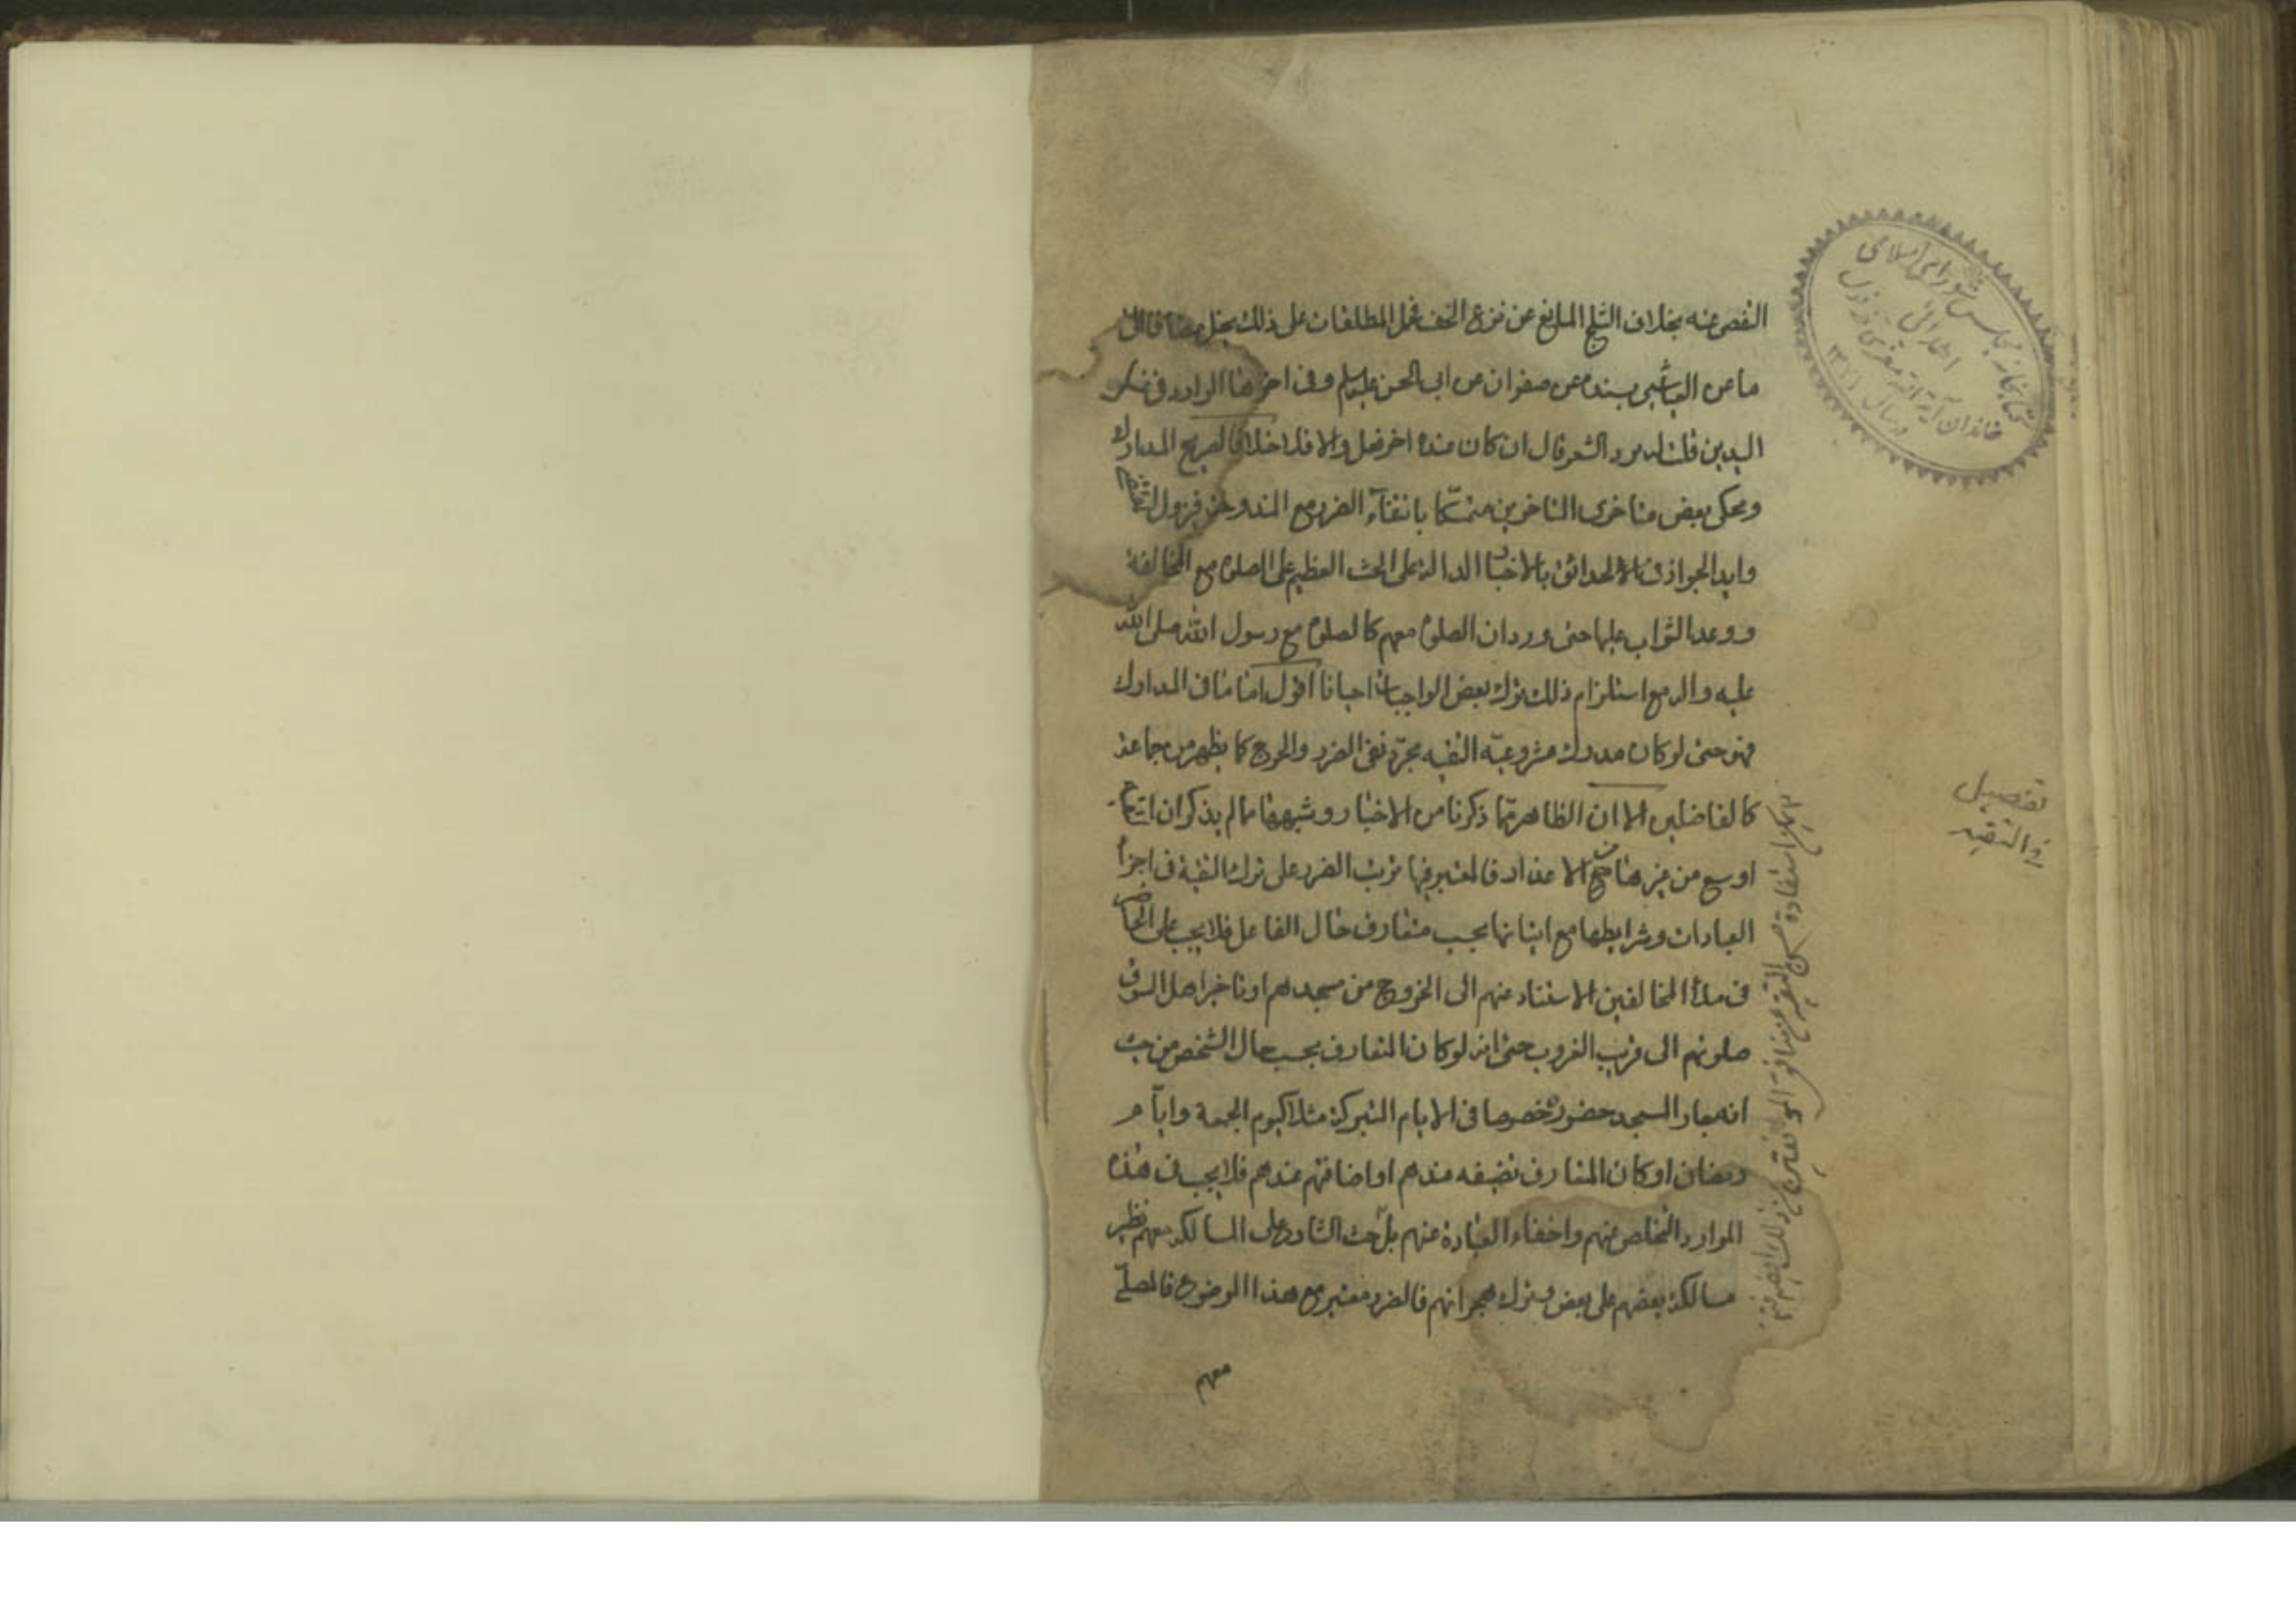 التفصى عنه بخلاف الثلج المانع عن نزع الخف فحمل المطلقات على ذلك
ما عن العياشي بسنده عن صفوان عن ابى الحسن عليه السلم وفى اخرها الوارد فى غسل
اليدين قلت له يرد الشعر قال ان كان عنده اخر فعل والا فلا خلافا لصريح المدارك
ويحكى بعض متاخرى المتاخرين متمسكا بانتفاء الضرر مع المندوحة فيزول المقتضى
وايد الجواز فى الحدائق بالاخبار الدالة على الحث العظيم على الصلوة مع المخالفة
ووعد الثواب عليها حتى ورد ان الصلوة معهم كالصلوة مع رسول الله صلى الله
عليه واله مع استلزام ذلك ترك بعض الواجبات احيانا اقول اما ما فى المدارك
فهو حق لو كان مدرك مشروعية التقية مجرد نفى الضرر والحرج كما يظهر من جماعة
كالفاضلين الا ان الظاهر مما ذكرنا من الاخبار وشبهها مما لم يذكر ان
اوسع من غيرها من الاعذار فالمعتبر فيها ترتب الضرر على ترك التقية فى اجزاء
العبادات وشرايطها مع اتيانها بحسب متعارف حال الفاعل فلا يجب على الحاضر
فى ملأ المخالفين الاستتار عنهم الى الخروج من مسجدهم او تاخير اهل السوق
صلوتهم الى قريب الغروب حتى انه لو كان المتعارف بحسب حال الشخص من حيث
انه جار المسجد حضوره خصوصا فى الايام المتبركة مثلا كيوم الجمعة وايام
رمضان او كان المتعارف تضيفه عندهم او اضافتهم عندهم فلا يجب فى هذه
الموارد التخلص عنهم واخفاء العبادة عنهم بل حث الشارع على المسالكة معهم نظير
مسالكة بعضهم على بعض وترك هجرانهم فالضرر معتبر مع هذا الموضوع فالمصلى
معهم
تفصيل
فى التقية
كتابخانه مجلس شوراى اسلامى
اهدائى
خاندان آية الله
در سال